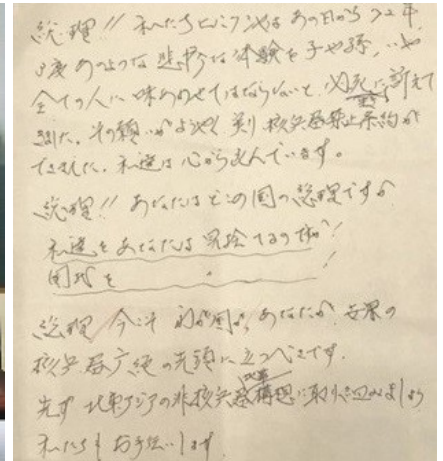 総理!! 私たちヒバクシャはあの日から72年
2度とあのような悲惨な体験を子や孫、いや
全ての人に味あわせてはならないと、必死に訴えて
来た。その願いがようやく実り核兵器禁止条約が
できました。私達は心から喜んでいます。
総理!! あなたはどこの国の総理ですか
私達をあなたは見捨てるのですか!
国民を !
総理 今こそ わが国が、あなたが 世界の
核兵器廃絶の先頭に立つべきです。
先ず 北東アジアの非核兵器地帯構想に取り組みましょう
私たちも お手伝いします